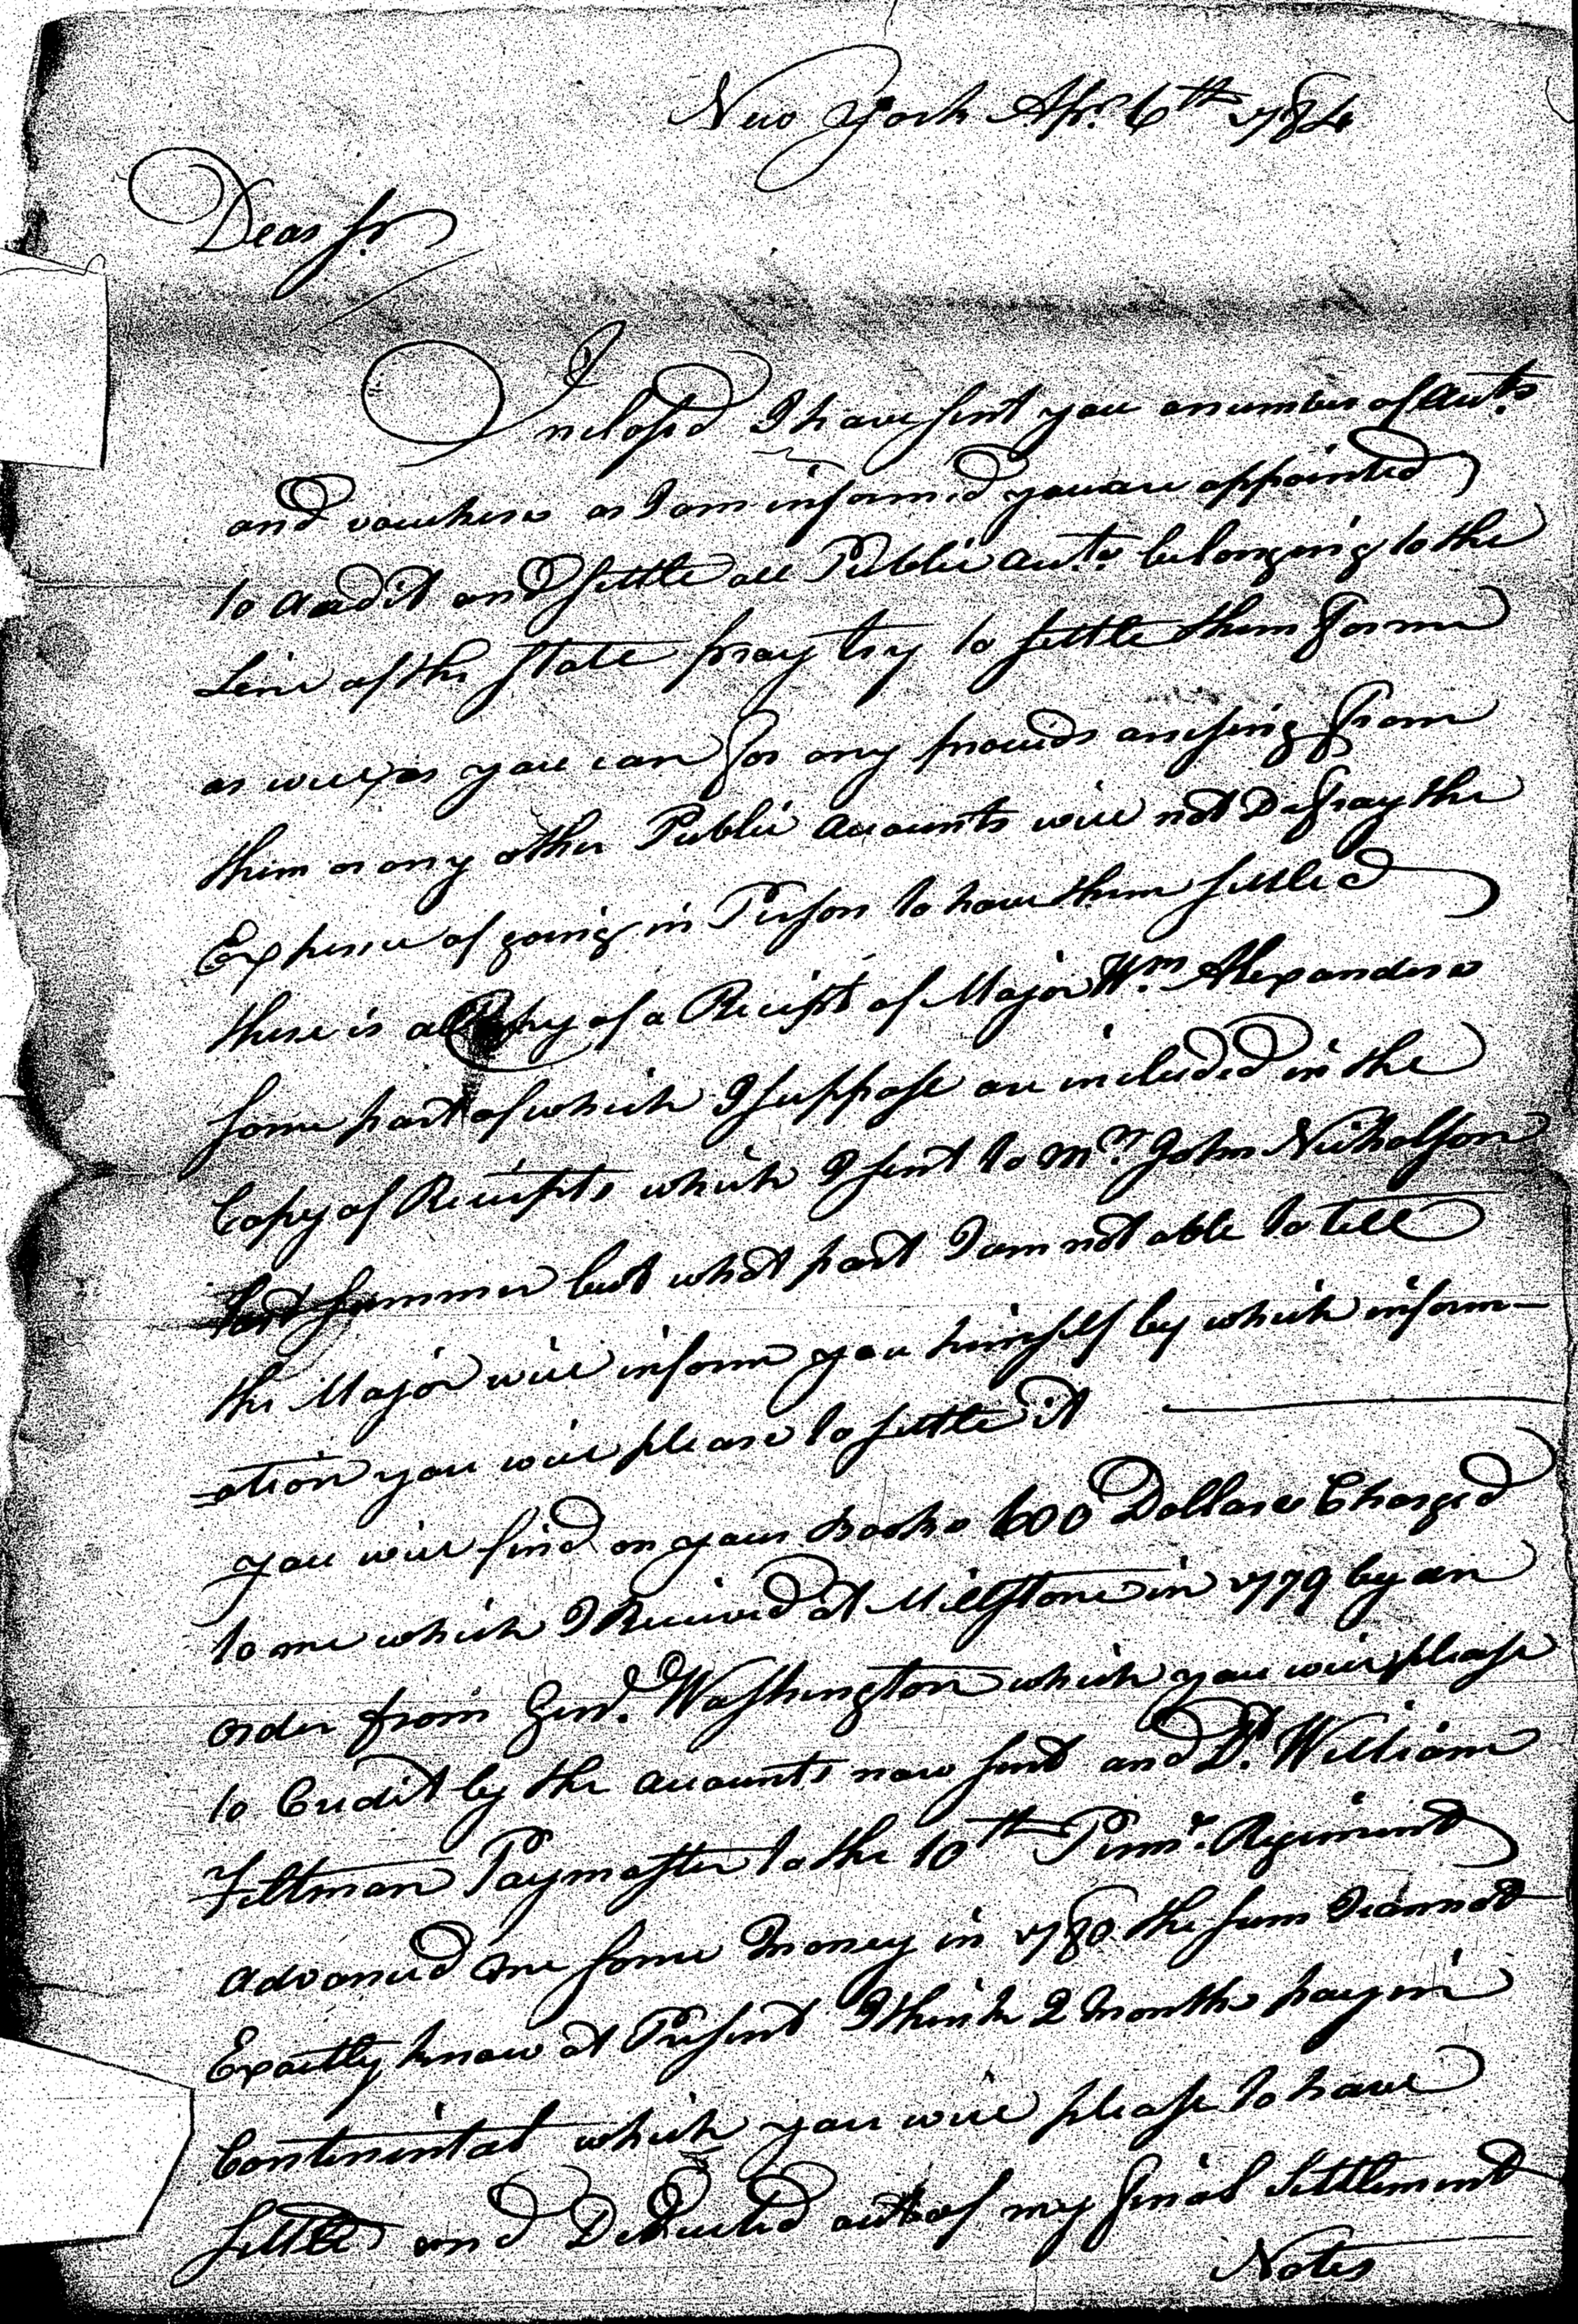 New York Apr. 6th 1784
Dear Sr.
Inclosed I have sent you a number of Acc.ts
and vouchers as I am informed you are appointed
to Audit and Settle all Public Acc.ts belonging to the
Line of the State pray try to settle them for me
as well as you can for any proceeds arising from
them or any other Public Accounts will not Defray the
Expence of going in Person to have them settled
there is a Copy of a Receipt of Major Wm. Alexanders
some part of which I suppose are included in the
Copy of Receipts which I sent to Mr. John Nicholson
last summer but what part I am not able to tell
the Major will inform you himself by which inform-
=ation you will please to settle it
you will find on your Books 600 Dollars Charged
to me which I Received at Millstone in 1779 by an
order from Genl. Washington which you will please
to Credit by the Accounts now sent and Lt. William
Feltman Paymaster to the 10th Penna. Regiment
advanced me some money in 1780 the sum I cannot
Exactly know at Present I think 2 months pay in
Continental which you will please to have
settled and Deducted out of my final Settlement
Notes